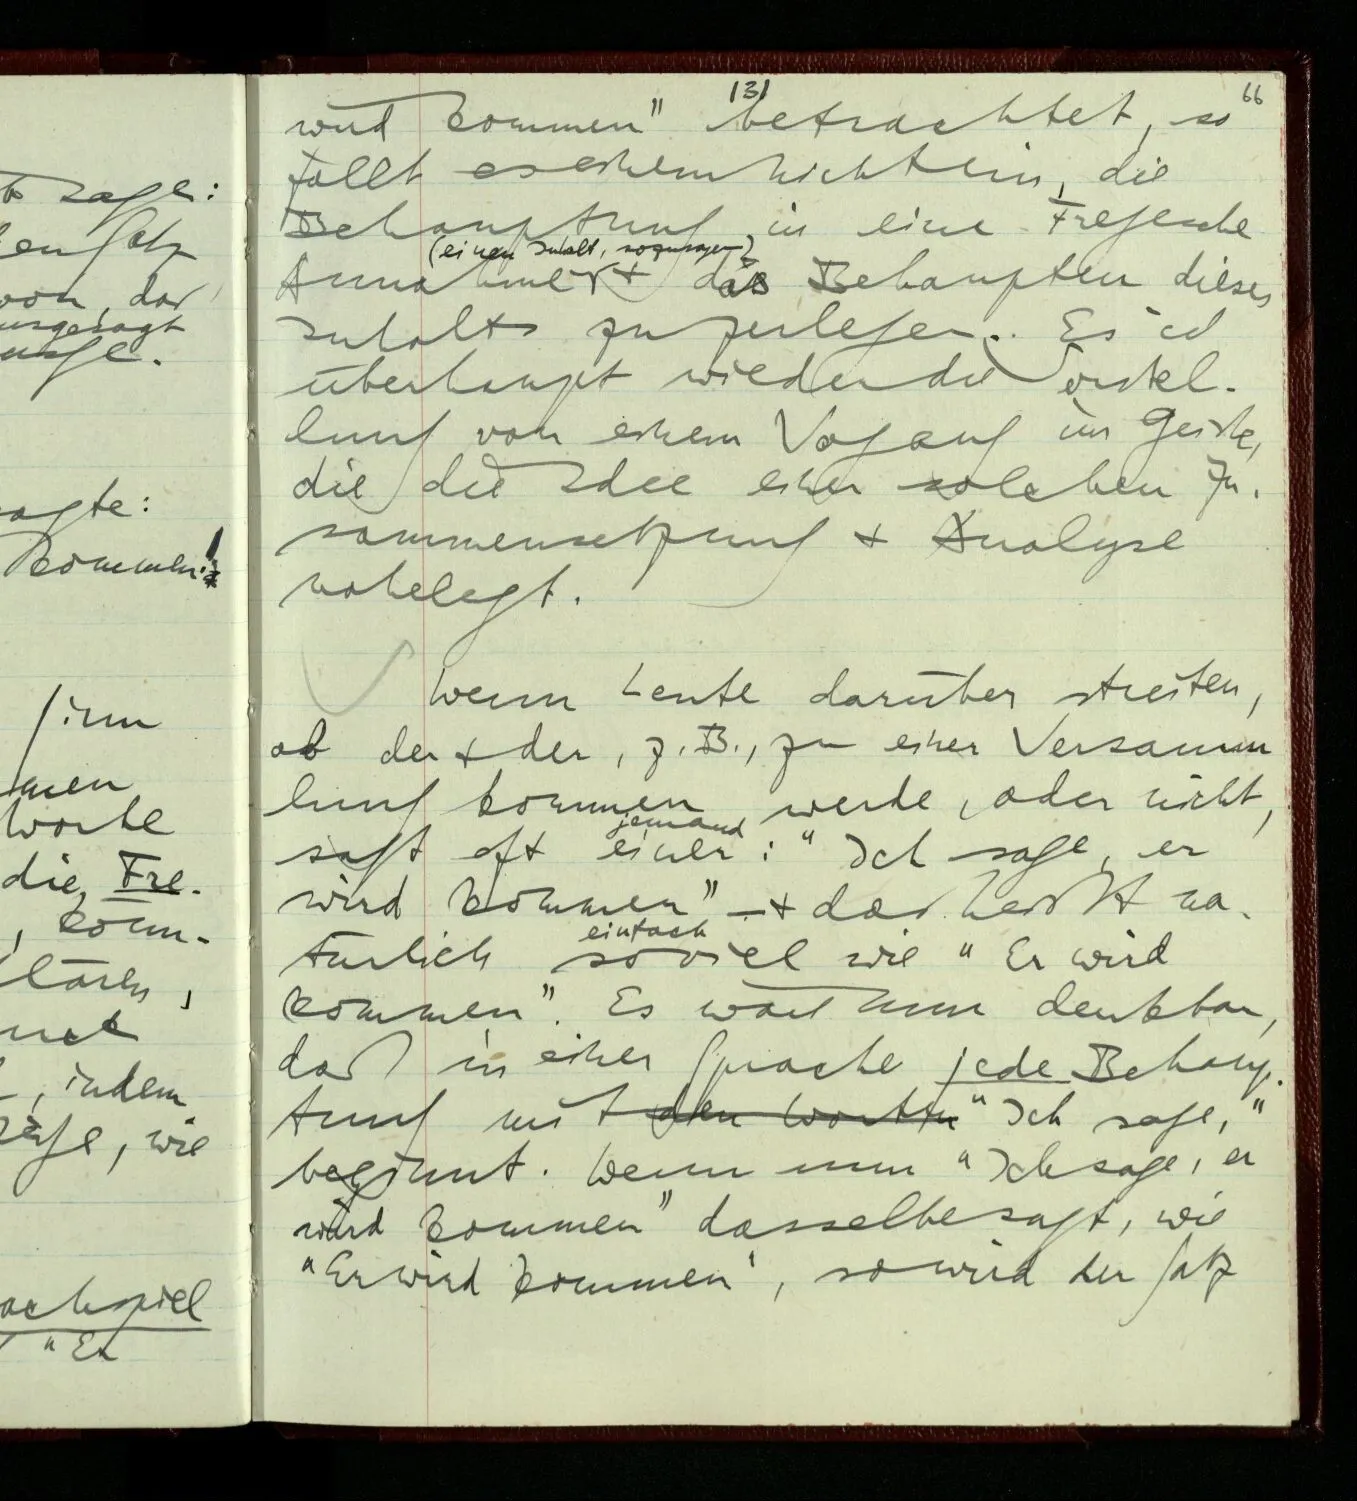 t sage:
en Satz
von, daß
ausgesagt
aussage.
sagte:
kommen!
Sinn
men
Worte
die Fre-
, könn-
klären,
, indem
, wie
achspiel
"Er
131
66
wird kommen" betrachtet, so
fällt es einem nicht ein, die
Behauptung in eine Fregesche
(einen Inhalt, sozusagen)
Annahme & das Behaupten dieses
Inhalts zu zerlegen. Es ist
überhaupt wieder die Vorstel-
lung von einem Vorgang im Geiste,
die die Idee einer solchen Zu-
sammensetzung & Analyse
nahelegt.
Wenn Leute darüber streiten,
ob der & der, z.B., zu einer Versamm
lung kommen werde, oder nicht,
jemand
sagt oft einer: "Ich sage, er
wird kommen" – & das heißt na-
einfach
türlich soviel wie "Er wird
kommen". Es wäre nun denkbar,
daß in einer Sprache jede Behaup-
tung mit den Worten "Ich sage,"
beginnt. Wenn nun "Ich sage, er
wird kommen" dasselbe sagt, wie
"Er wird kommen", so wird der Satz